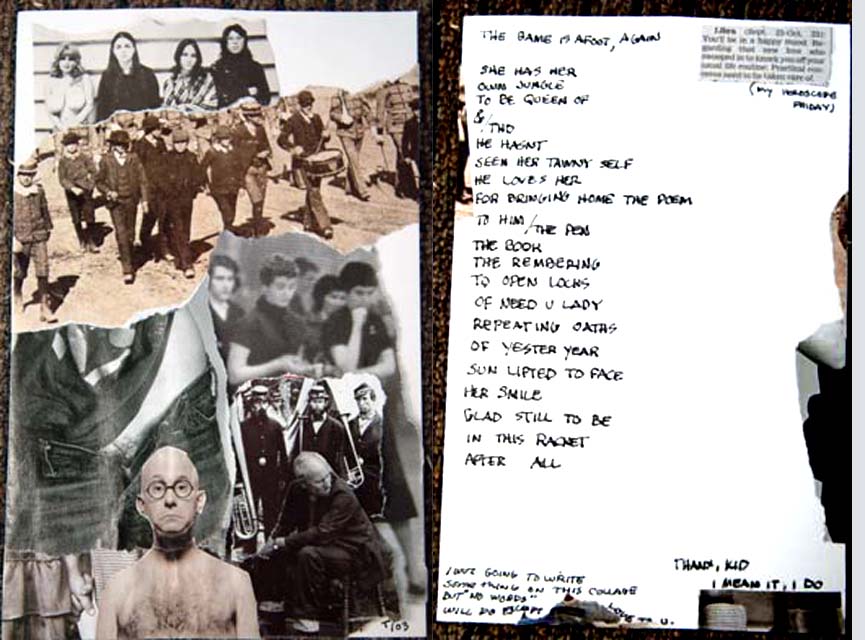 T/03
THE GAME IS AFOOT, AGAIN
Libra (Sept. 23-Oct. 23):
You'll be in a happy mood. Re-
garding that new boss who
swooped in to knock you off your
usual life routine: Practical con-
cerns need to be taken care of.
(MY HOROSCOPE
FRIDAY)
SHE HAS HER
OWN JUNGLE
TO BE QUEEN OF
&/THO
HE HASNT
SEEN HER TAWNY SELF
HE LOVES HER
FOR BRINGING HOME THE POEM
TO HIM/THE PEN
THE BOOK
THE REMBERING
TO OPEN LOCKS
OF NEED U LADY
REPEATING OATHS
OF YESTER YEAR
SUN LIFTED TO FACE
HER SMILE
GLAD STILL TO BE
IN THIS RACKET
AFTER ALL
THANX, KID
I MEAN IT, I DO
I WAS GOING TO WRITE
SOMETHING ON THIS COLLAGE
BUT "NO WORDS"
WILL DO EXCEPT LOVE TO U.